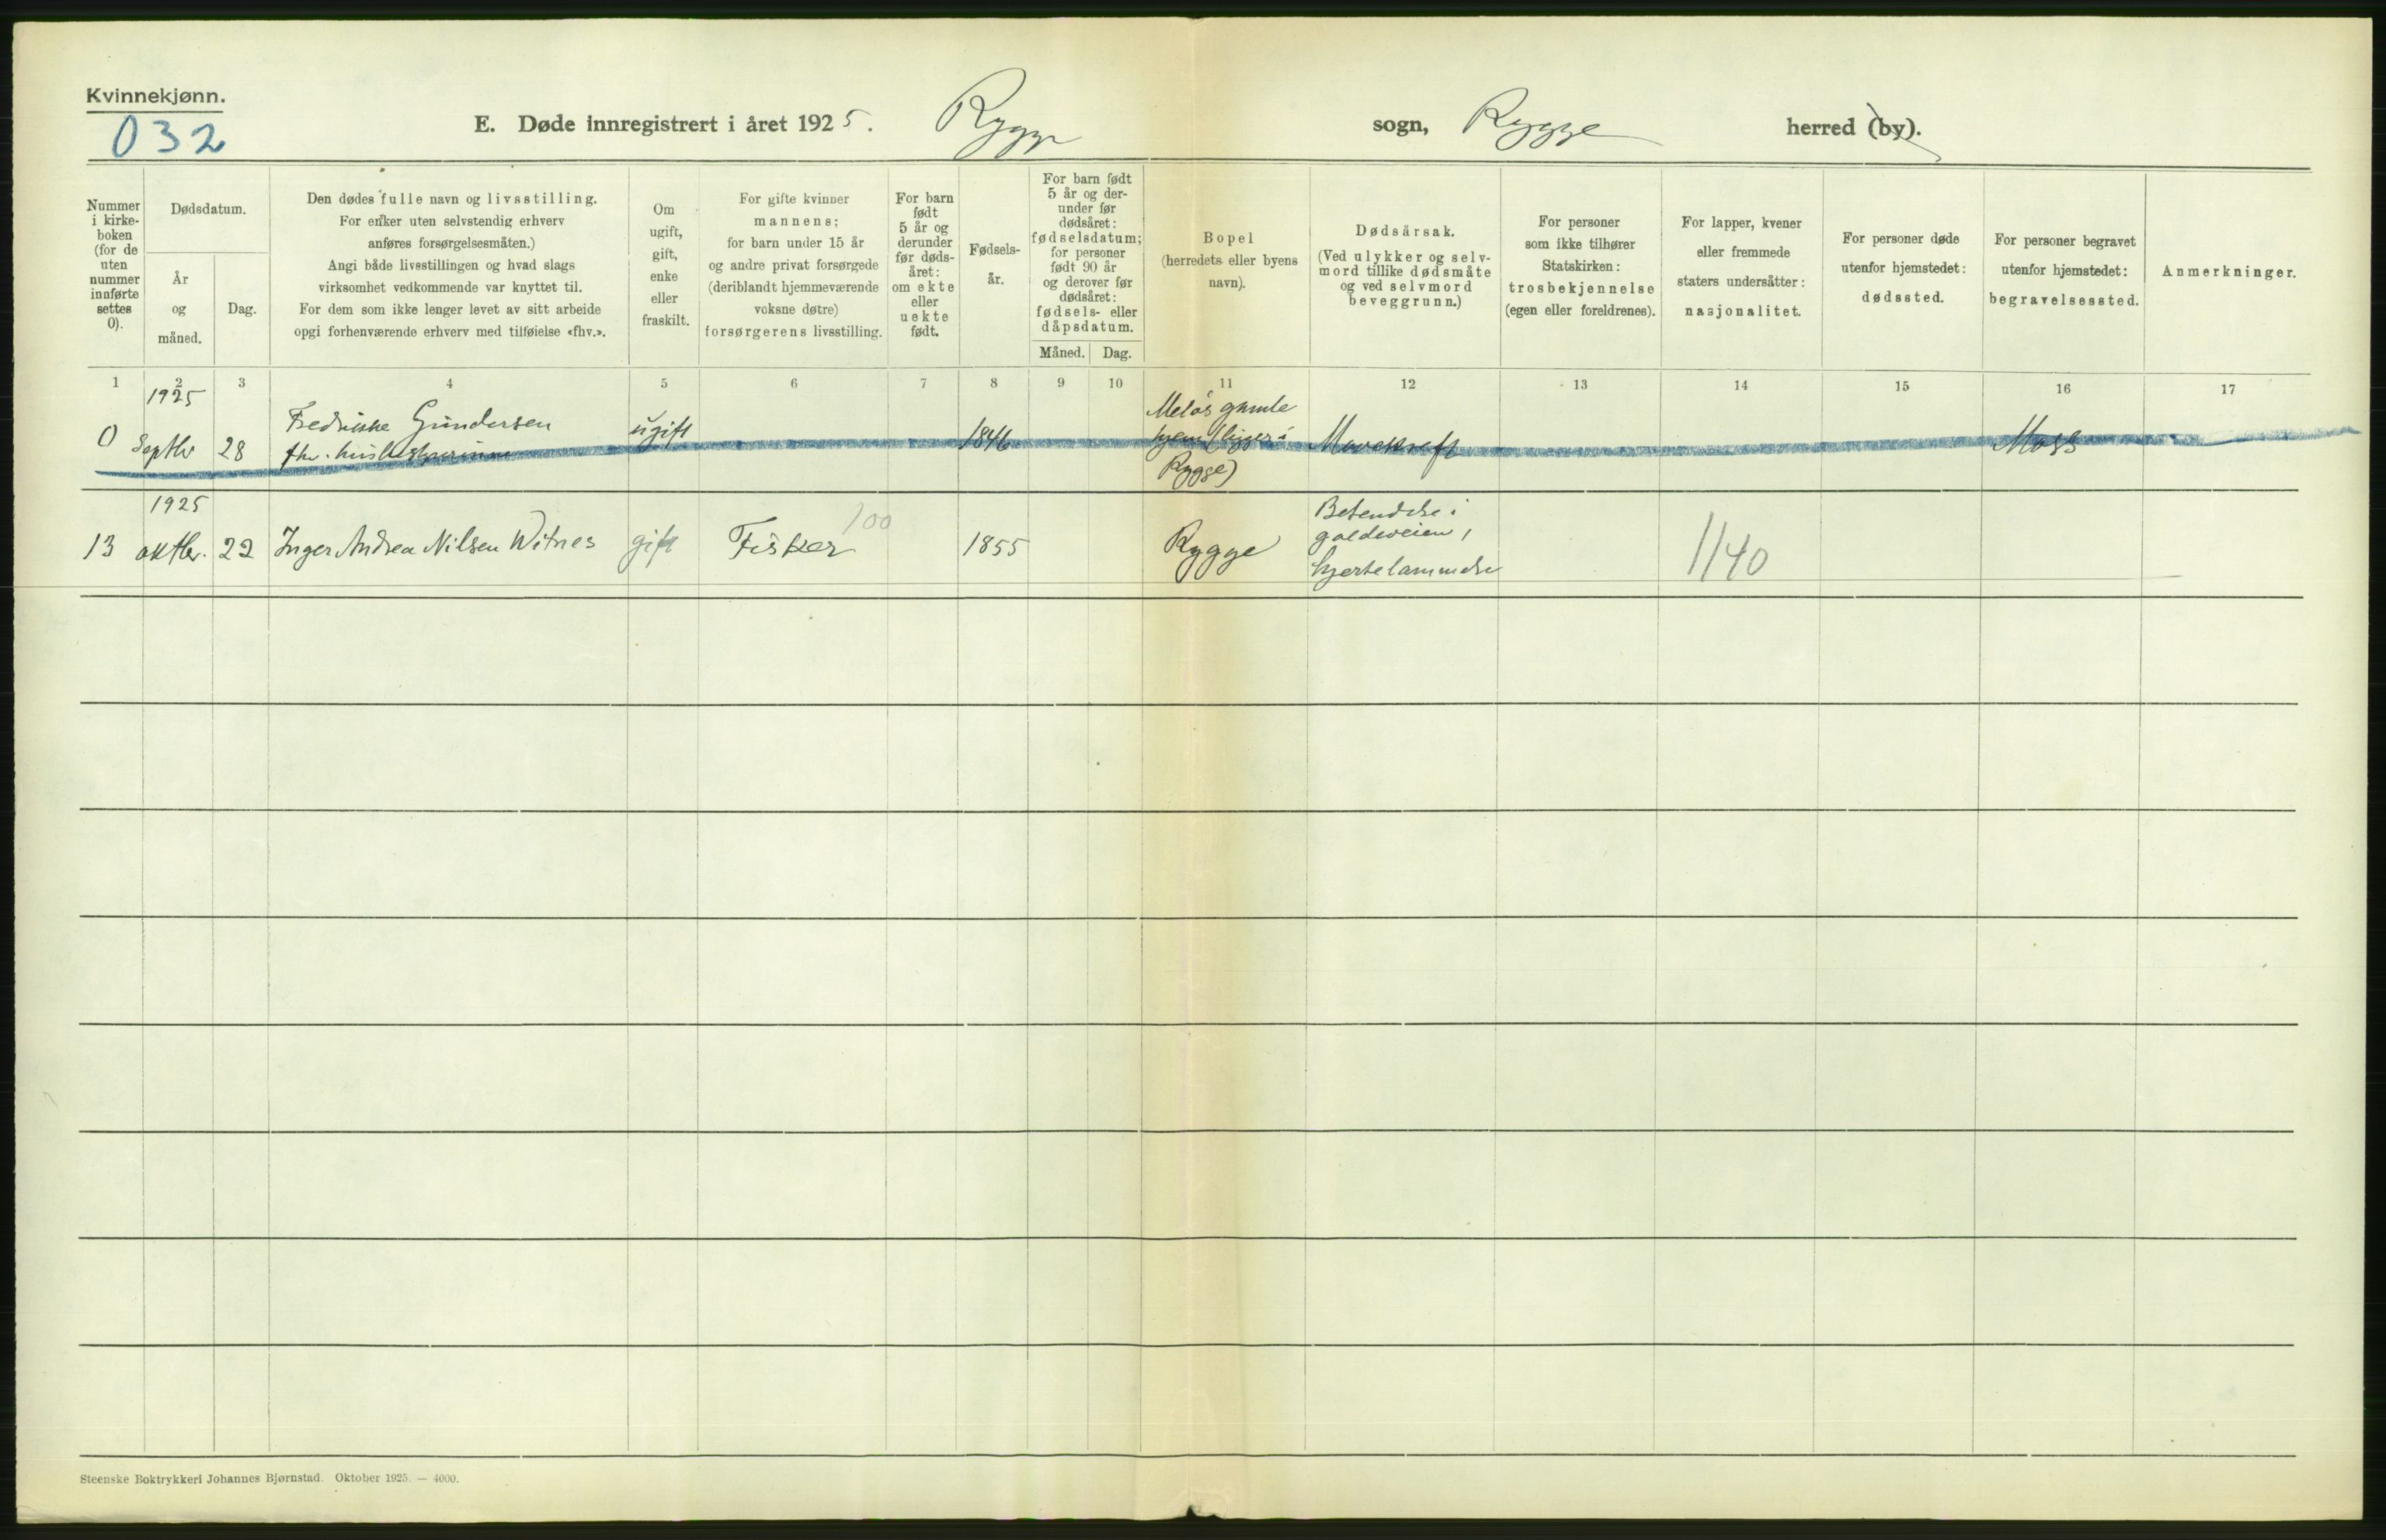 Kvinnekjønn.
032
E. Døde innregistrert i året 1925. Rygge sogn, Rygge herred (by).
Nummer i kirke- boken (for de uten nummer innførte settes 0).
Dødsdatum.
År og måned.
Dag.
Den dødes fulle navn og livsstilling.
For enker uten selvstendig erhverv
anføres forsørgelsesmåten.)
Angi både livsstillingen og hvad slags
virksomhet vedkommende var knyttet til.
For dem som ikke lenger levet av sitt arbeide
opgi forhenværende erhverv med tilføielse «fhv.».
Om
ugift,
gift,
enke
eller
fraskilt.
For gifte kvinner
mannens;
for barn under 15 år
og andre privat forsørgede
(deriblandt hjemmeværende
voksne døtre)
forsørgerens livsstilling.
For barn
født
5 år og
derunder
før døds-
året:
om ekte
eller
uekte
født.
Fødsels-
år.
For barn født
5 år og der-
under før
dødsåret:
fødselsdatum;
for personer
født 90 år
og derover før
dødsåret:
fødsels- eller
dåpsdatum.
Måned. Dag.
Bopel
(herredets eller byens
navn).
Dødsårsak.
(Ved ulykker og selv-
mord tillike dødsmåte
og ved selvmord
beveggrunn.)
For personer
som ikke tilhører
Statskirken:
trosbekjennelse
(egen eller foreldrenes).
For lapper, kvener
eller fremmede
staters undersåtter:
nasjonalitet.
For personer døde
utenfor hjemstedet:
dødssted.
For personer begravet
utenfor hjemstedet:
begravelsessted.
Anmerkninger.
1 2 3 4 5 6 7 8 9 10 11 12 13 14 15 16 17
1925
0 Septbr 28 Fredrikke Gundersen
fhv. husbestyrerinne
ugift 1846
Meløs gamle
hjem (ligger i
Rygge)
Mavekreft Moss
1925
13 oktbr. 22 Inger Andrea Nilsen Witnes gift Fisker 100 1855 Rygge
Betendelse i
galdeveien,
hjertelammelse
1140
Steenske Boktrykkeri Johannes Bjørnstad. Oktober 1925. — 4000.